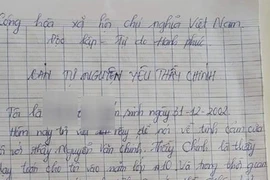 Cộng hòa xã hội chủ nghĩa Việt Nam
Độc lập - Tự do Hạnh phúc
BẢN TỰ NGUYỆN YÊU THẦY CHÍNH
Tôi là sinh ngày 31-12-2002
Hôm nay tôi này để nói về tình cảm của
với thầy Nguyễn Văn Chính. Thầy Chính là thầy
dạy toán cho tôi vào năm lớp 10 Và trong thời gian